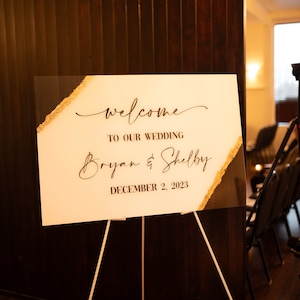 welcome
TO OUR WEDDING
Bryan & Shelby
DECEMBER 2, 2023